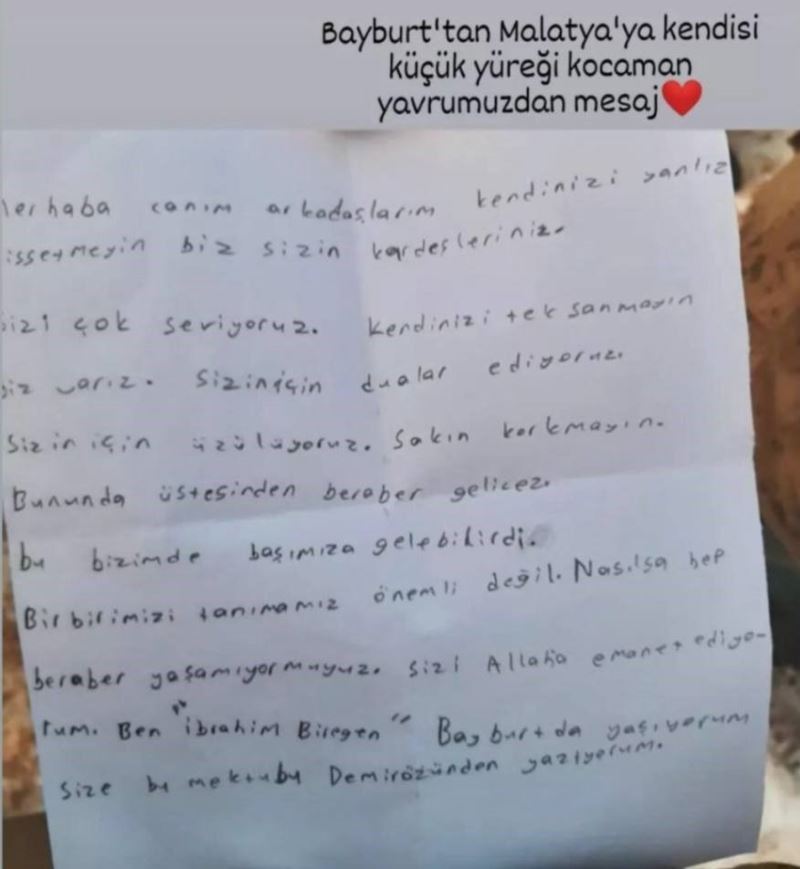 Bayburt'tan Malatya'ya kendisi
küçük yüreği kocaman
yavrumuzdan mesaj❤️
Merhaba canım arkadaşlarım kendinizi yanlız
issetmeyin biz sizin kardeşleriniz.
sizi çok seviyoruz. Kendinizi tek sanmayın
biz varız. Siziniçin dualar ediyoruz.
Sizin için üzülüyoruz. Sakın korkmayın.
Bununda üstesinden beraber gelicez.
bu bizimde başımıza gelebilirdi.
Birbirimizi tanımamız önemli değil. Nasılsa hep
beraber yaşamıyormuyuz. Sizi Allaha emanet ediyo-
rum. Ben "ibrahim Biregen" Bayburtda yaşıyorum
size bu mektubu Demirözünden yazıyorum.